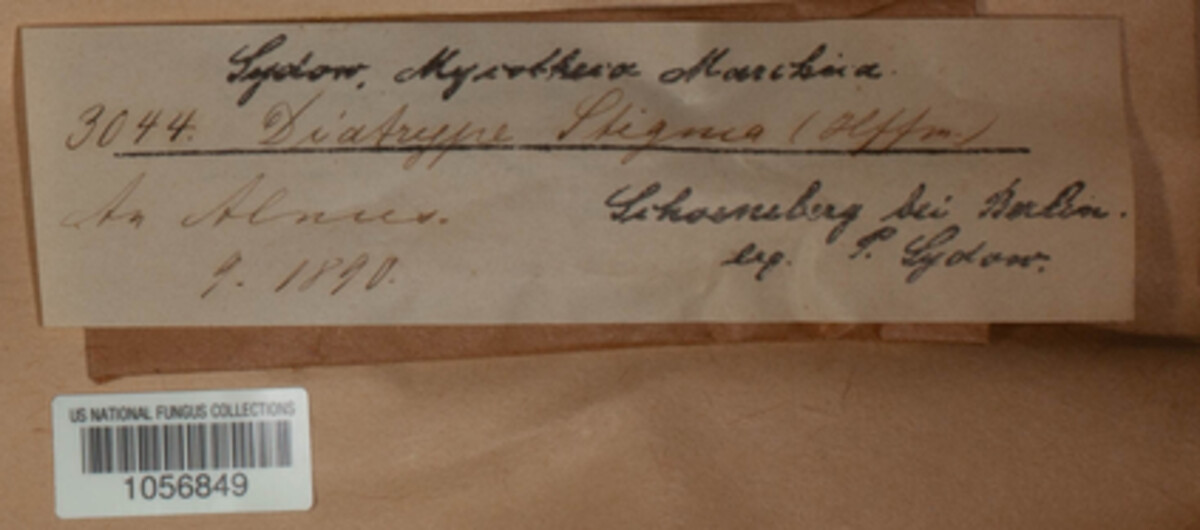 Sydow, Mycotheca Marchica.
3044. Diatrype Stigma (Hffm.)
An Alnus.
9. 1890.
Schoeneberg bei Berlin.
leg. P. Sydow.
US NATIONAL FUNGUS COLLECTIONS
1056849